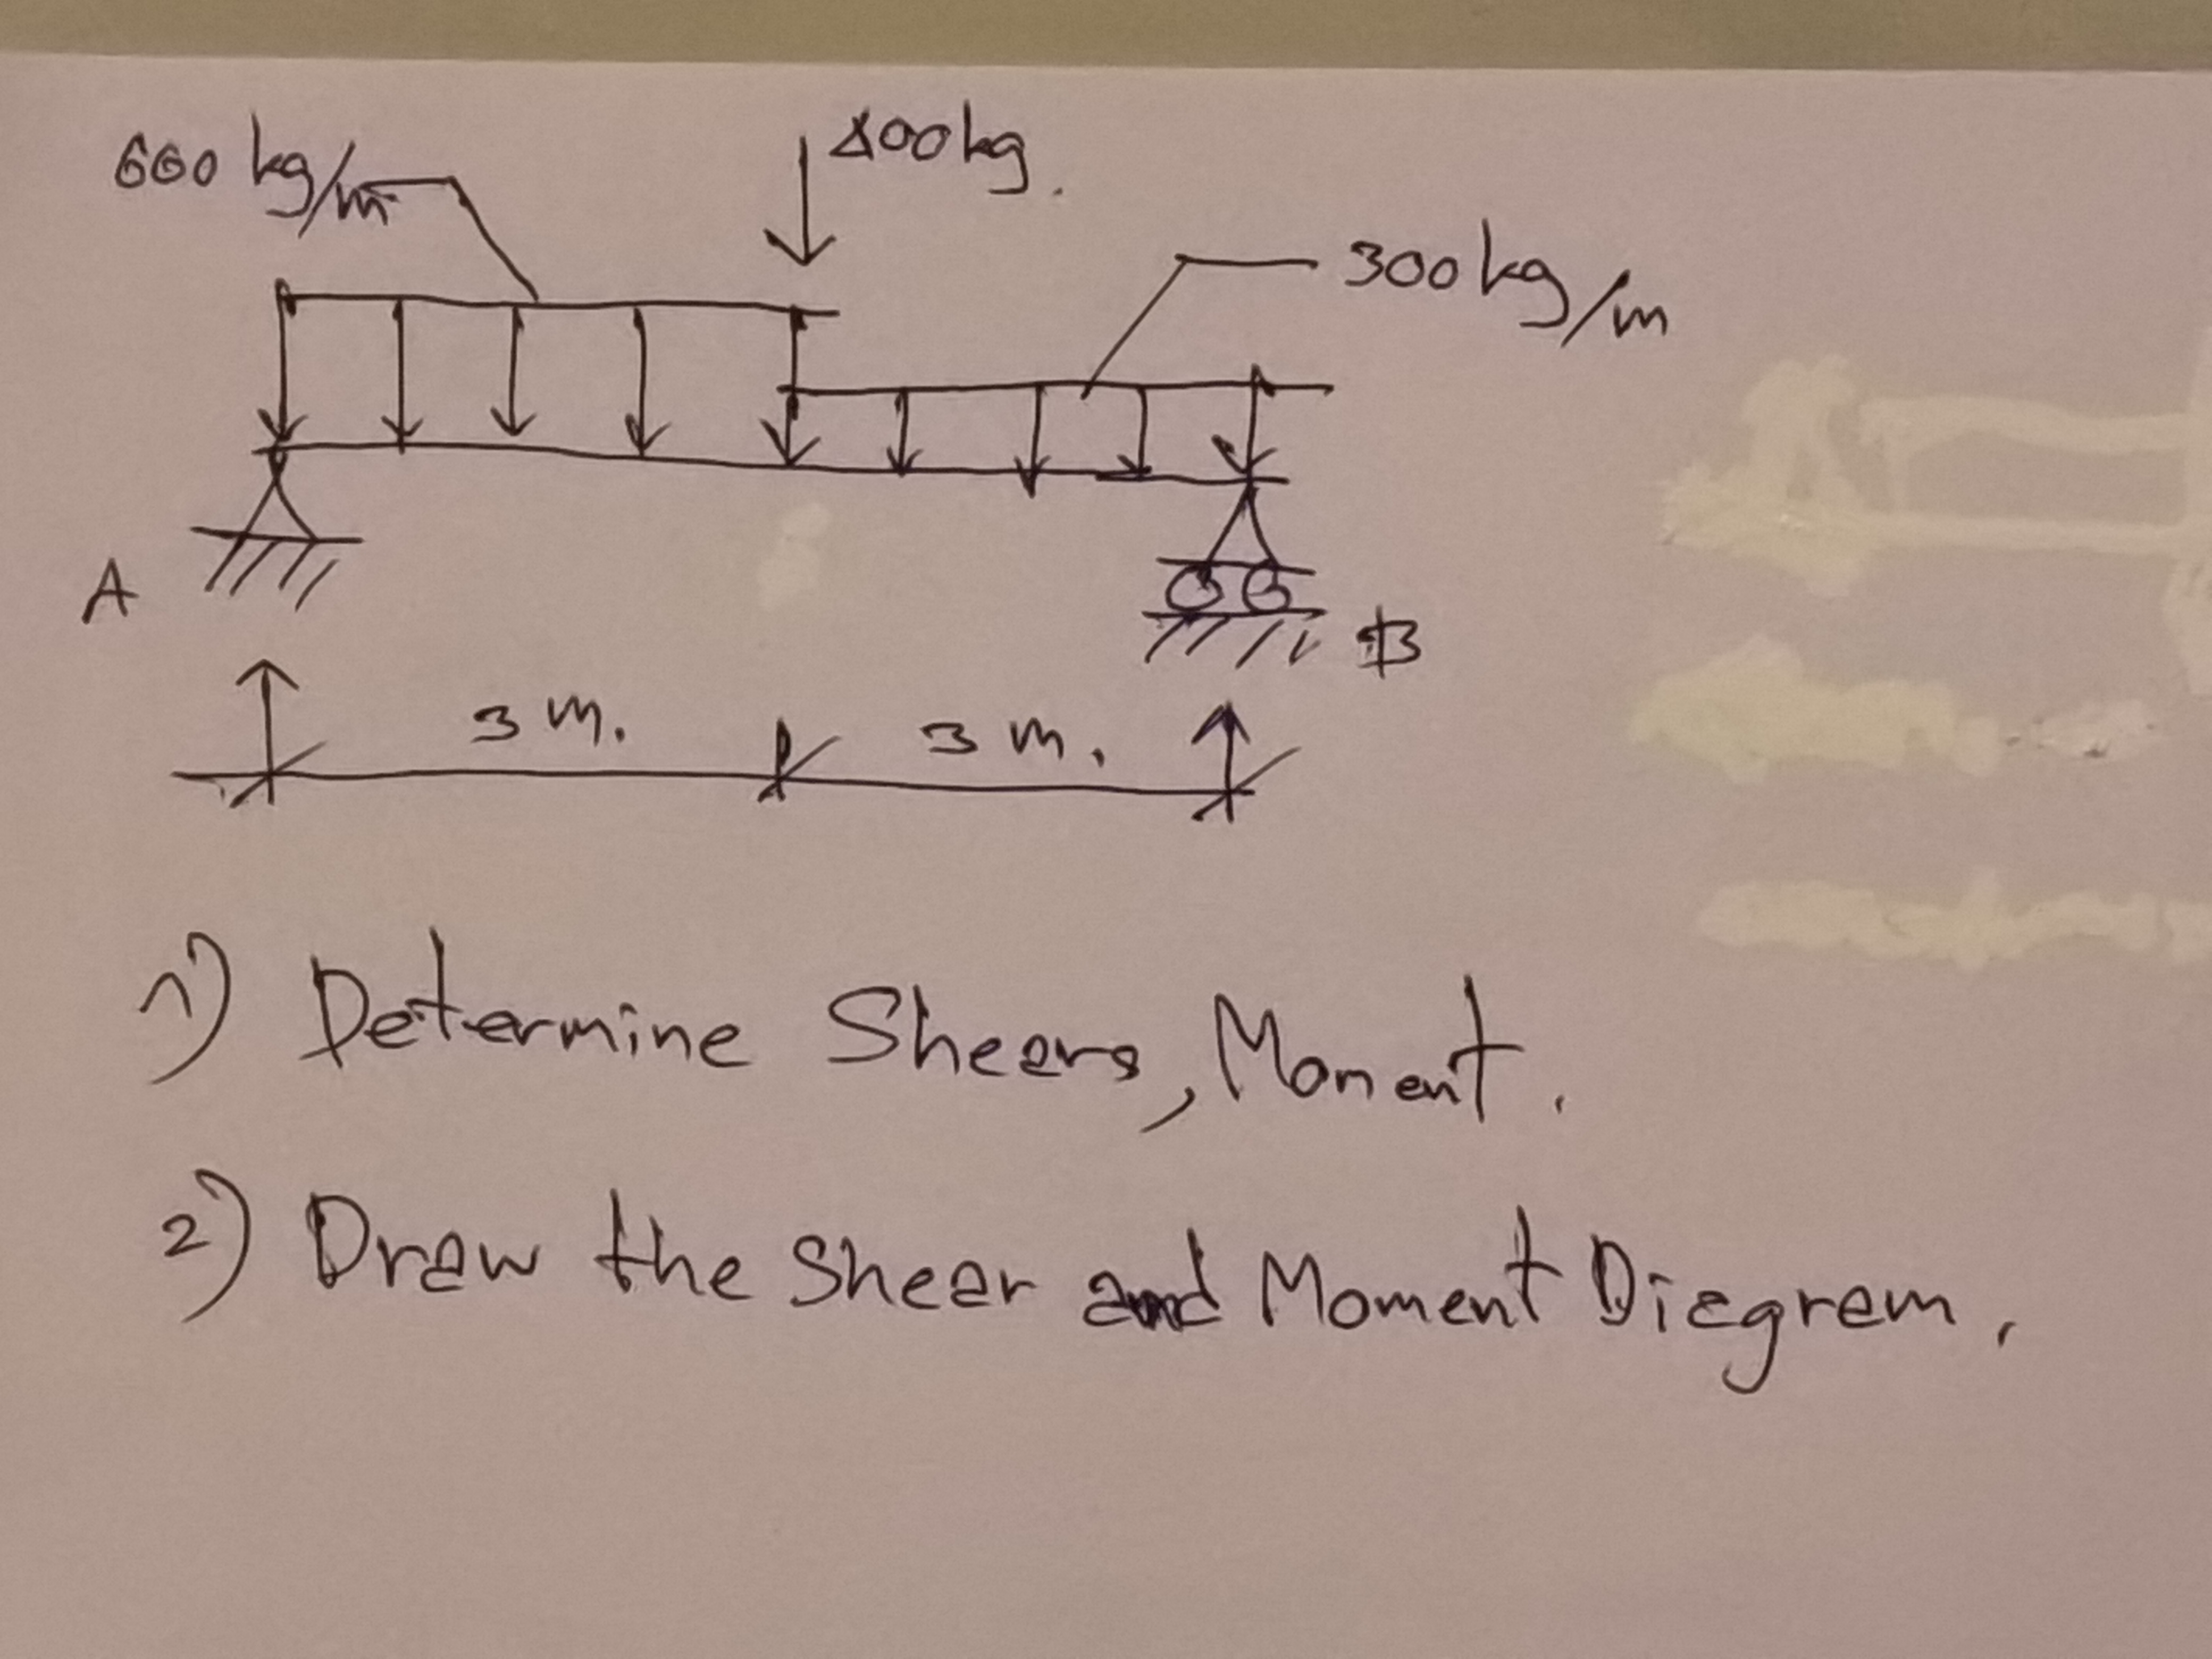 600 kg/m
400 kg.
300 kg/m
A
B
3 m.
3 m.
1) Determine Shears, Moment.
2) Draw the Shear and Moment Diagram.